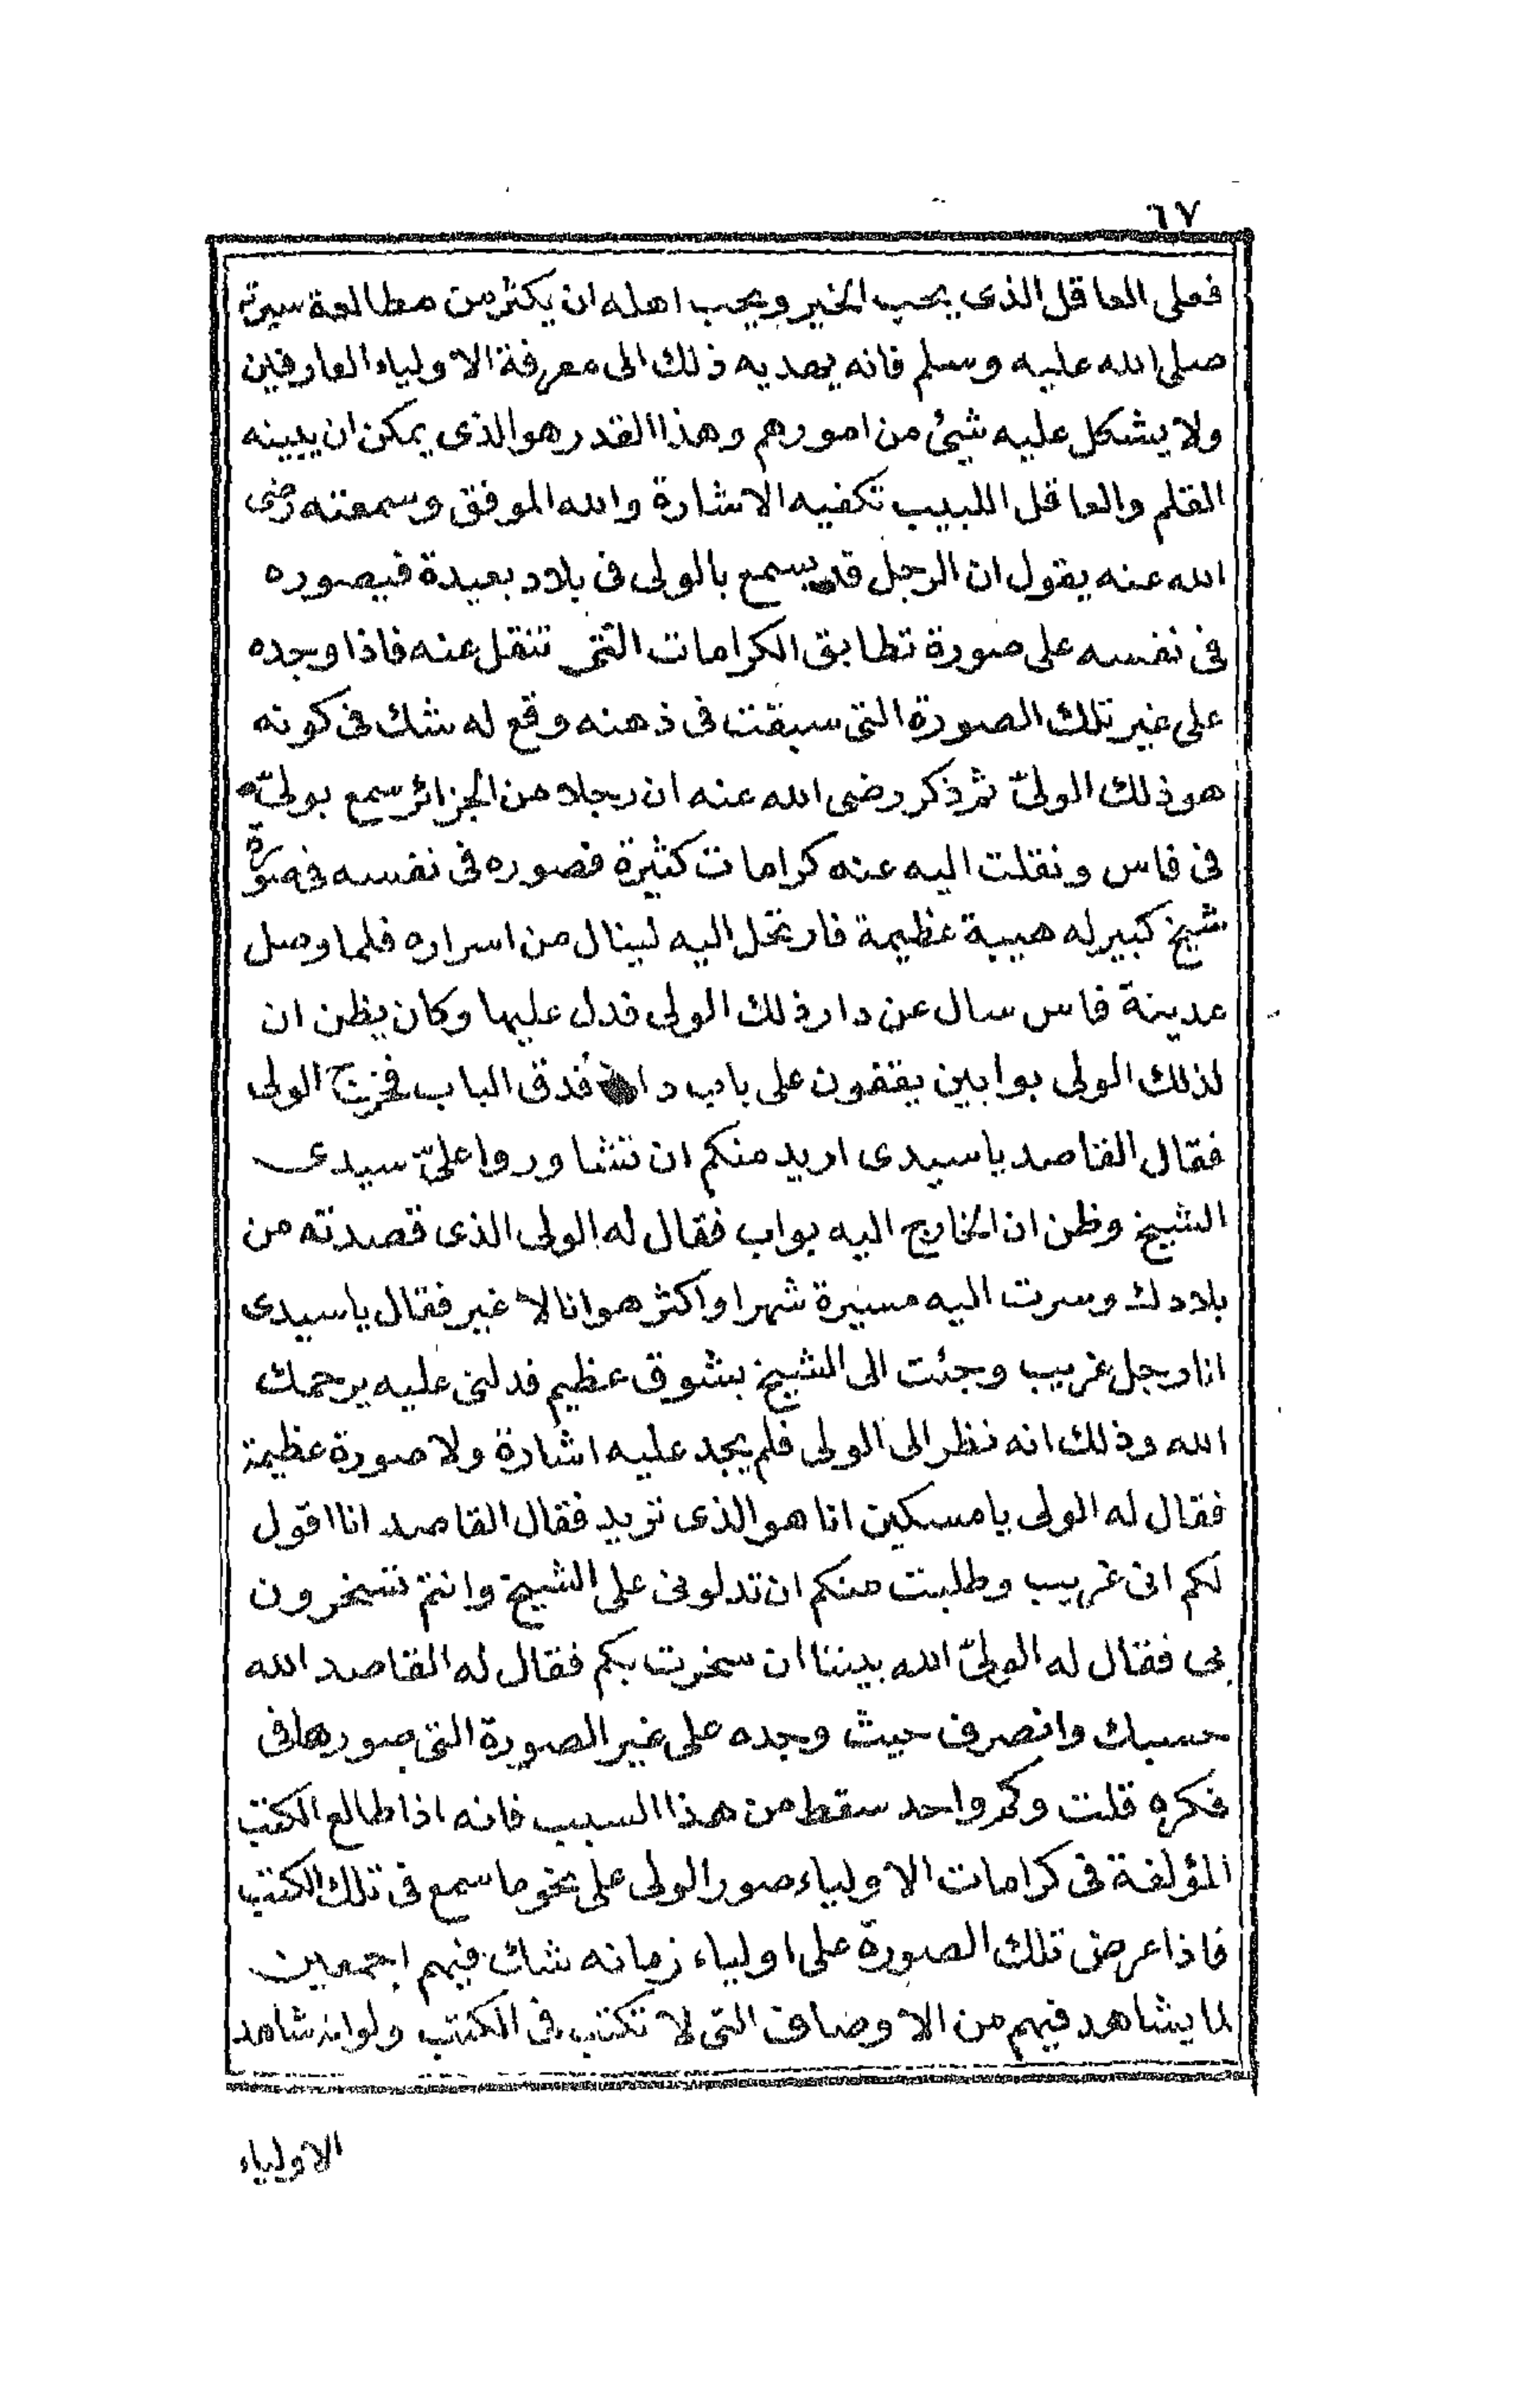 ٦٧
فعلى العاقل الذى يحب الخير ويحب اهله ان يكثر من مطالعة سيرته
صلى الله عليه وسلم فانه يهديه ذلك الى معرفة الاولياء العارفين
ولا يشكل عليه شيئ من امورهم وهذا القدر هو الذى يمكن ان يبينه
القلم والعاقل اللبيب تكفيه الاشارة والله الموفق وسمعته رضى
الله عنه يقول ان الرجل قد يسمع بالولى فى بلاد بعيدة فيصوره
فى نفسه على صورة تطابق الكرامات التى تنقل عنه فاذا وجده
على غير تلك الصورة التى سبقت فى ذهنه وقع له شك فى كونه
هو ذلك الولىّ ثم ذكر رضى الله عنه ان رجلا من الجزائر سمع بولىّ
فى فاس ونقلت اليه عنه كرامات كثيرة فصوره فى نفسه فى صورة
شيخ كبير له هيبة عظيمة فارتحل اليه لينال من اسراره فلما وصل
مدينة فاس سال عن دار ذلك الولى فدل عليها وكان يظن ان
لذلك الولى بوابين يقفون على باب داره فدق الباب فخرج الولى
فقال القاصد يا سيدى اريد منكم ان تشاوروا علىّ سيدى
الشيخ وظن ان الخارج اليه بواب فقال له الولى الذى قصدته من
بلادك وسرت اليه مسيرة شهر او اكثر هو انا لا غير فقال يا سيدى
انا رجل غريب وجئت الى الشيخ بشوق عظيم فدلنى عليه يرحمك
الله وذلك انه نظر الى الولى فلم يجد عليه اشارة ولا صورة عظيمة
فقال له الولى يا مسكين انا هو الذى تريد فقال القاصد انا اقول
لكم انى غريب وطلبت منكم ان تدلونى على الشيخ وانتم تسخرون
بى فقال له الولىّ الله بيننا ان سخرت بكم فقال له القاصد الله
حسبك وانصرف حيث وجده على غير الصورة التى صورها فى
فكره قلت وكم واحد سقط من هذا السبب فانه اذا طالع الكتب
المؤلفة فى كرامات الاولياء صور الولى على نحو ما سمع فى تلك الكتب
فاذا عرض تلك الصورة على اولياء زمانه شك فيهم اجمعين
لما يشاهد فيهم من الاوصاف التى لا تكتب فى الكتب ولو انه شاهد
الاولياء